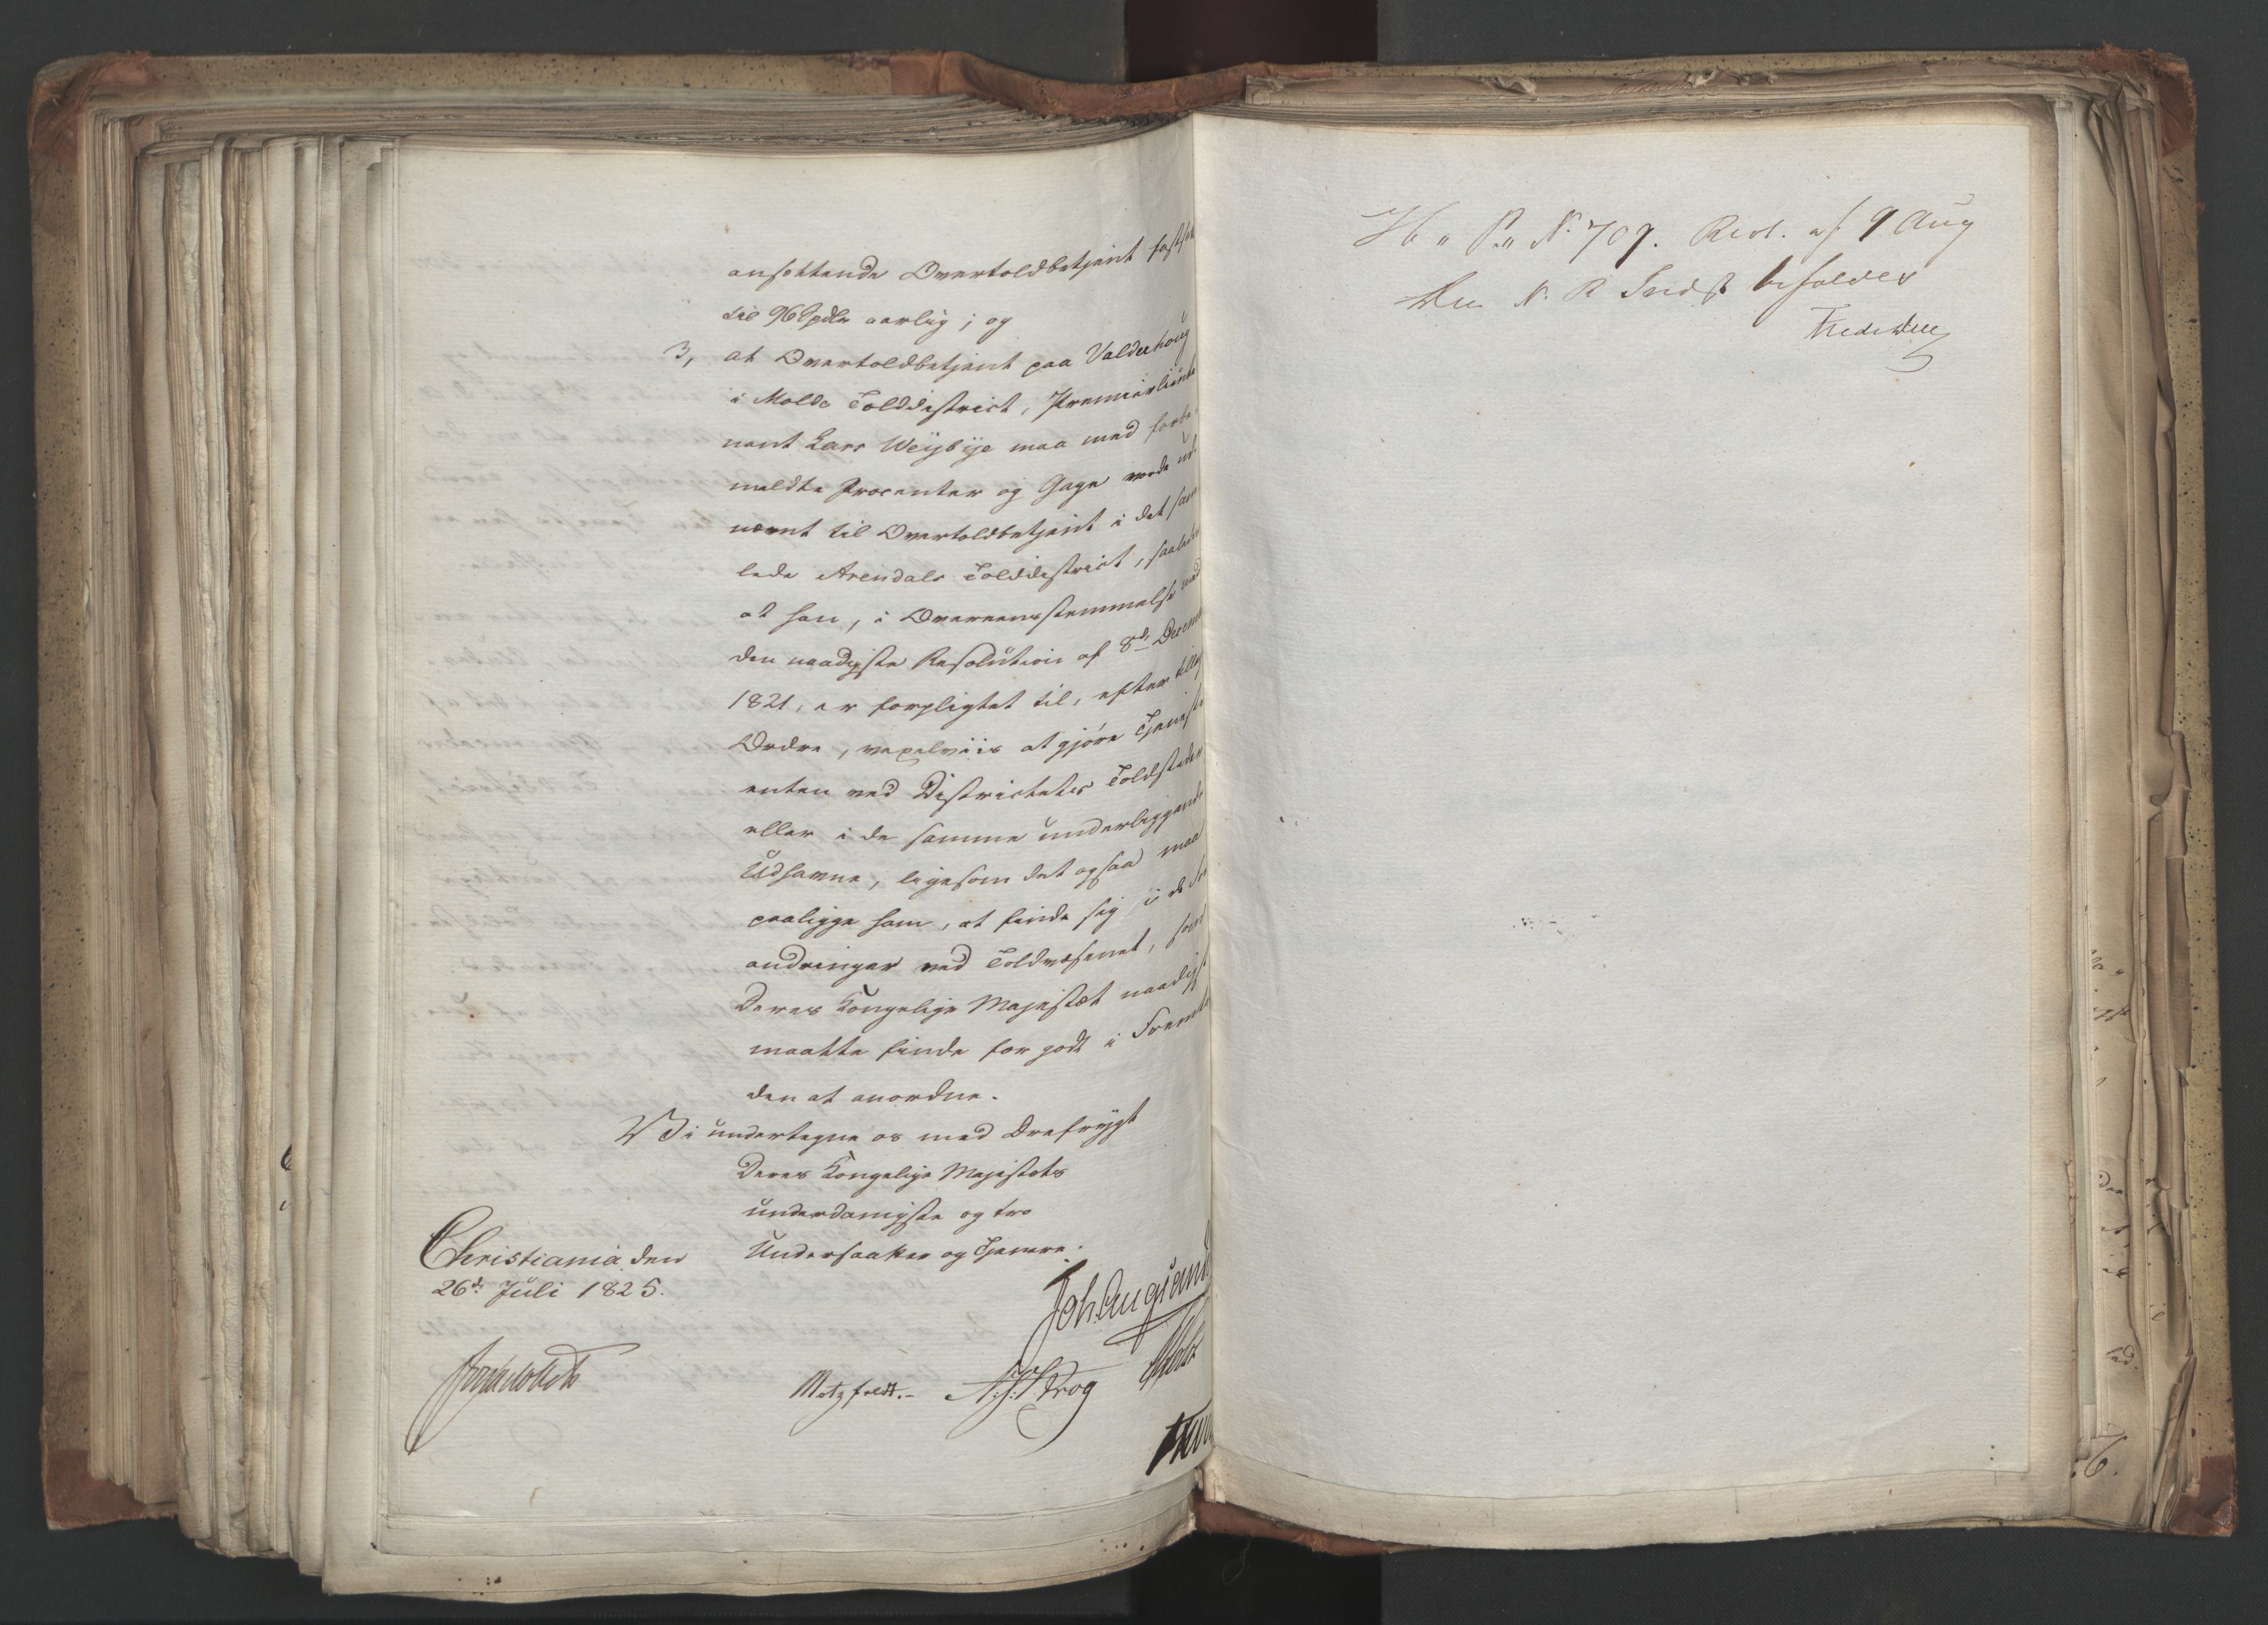 ansættende Overtoldbetjent fastsæt
til 96 Spdlr aarlig; og
3, at Overtoldbetjent paa Valderhoug
i Molde Tolddistrict, Premierlieute
nant Lars Weijbije maa med forbe
meldte Procenter og Gage vorde ud
nævnt til Overtoldbetjent i det sam
lede Arendals Tolddistrict, saaledes
at han, i Overeensstemmelse med
den naadigste Resolution af 8de Decem
1821, er forpligtet til, efter
Ordre, vexelviis at gjøre Tjeneste
enten ved Districtets Toldsteder
eller i de samme underliggende
Udhavne, ligesom det ogsaa maa
paaligge ham, at finde sig i de For
andringer ved Toldvæsenet, som
Deres Kongelige Majestæt naadigst
maatte finde for godt i Fremti
den at anordne.
Vi undertegne os med Ærefrygt
Deres Kongelige Majestæts
underdanigste og tro
Undersaatter og Tjenere.
Christiania den
26de Juli 1825.
Joh. Aug. Sand
Motzfeldt. A. J. Krog
No 709. Resl. af 9 Aug
Den N. R. Indst